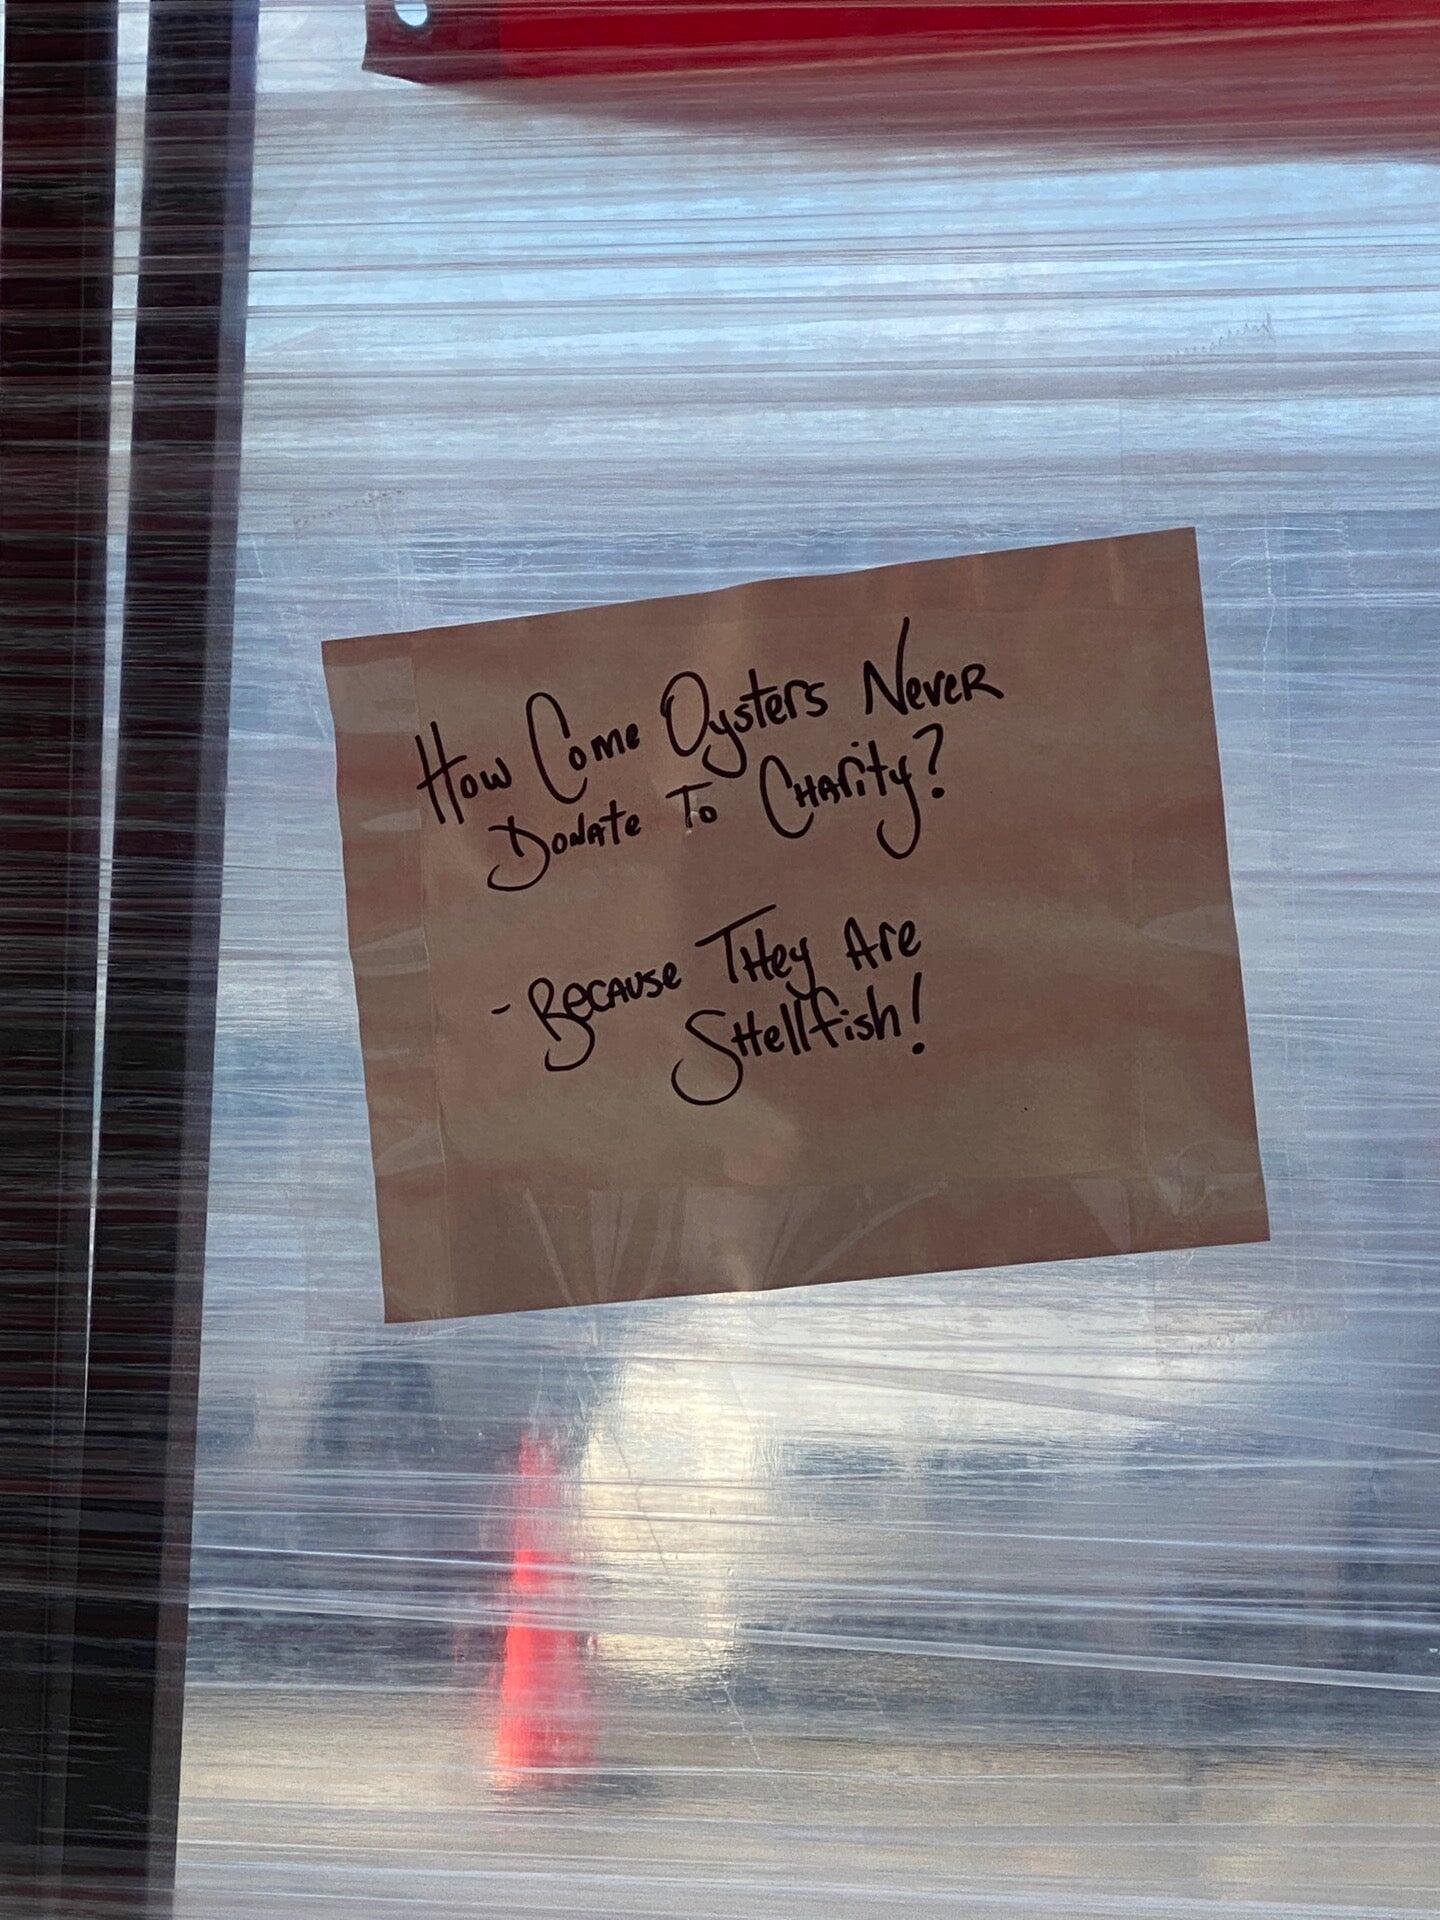 How Come Oysters Never
Donate To Charity?
- Because They Are
Shellfish!